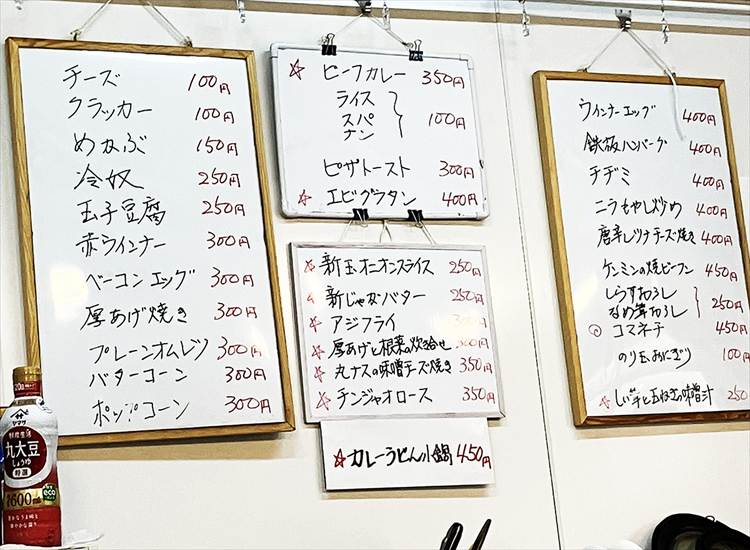 チーズ 100円
クラッカー 100円
めかぶ 150円
冷奴 250円
玉子豆腐 250円
赤ウインナー 300円
ベーコンエッグ 300円
厚あげ焼き 300円
プレーンオムレツ 300円
バターコーン 300円
ポップコーン 300円
☆ ビーフカレー 350円
ライス
スパ 100円
ナン
ピザトースト 300円
☆ エビグラタン 400円
☆ 新玉オニオンスライス 250円
新じゃがバター 250円
☆ アジフライ 300円
☆ 厚あげと根菜の炊合せ 300円
☆ 丸ナスの味噌チーズ焼き 350円
☆ チンジャオロース 350円
☆ カレーうどん小鍋 450円
ウインナーエッグ 400円
鉄板ハンバーグ 400円
チヂミ 400円
ニラもやし炒め 400円
唐辛しツナチーズ焼き 400円
ケンミンの焼ビーフン 450円
しらすおろし
なめ茸おろし 250円
コマネチ 450円
のり玉おにぎり 100円
☆ しい茸と玉ねぎの味噌汁 250
ヤマサ
鮮度生活
丸大豆
しょうゆ
特選
600ml
eco